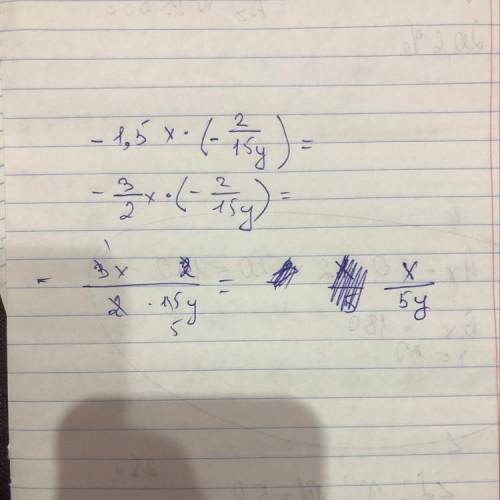 - 1,5 x · (- 2/15y) =
- 3/2 x · (- 2/15y) =
= 3x 2 / 2 · 15y = x/5y
1
5